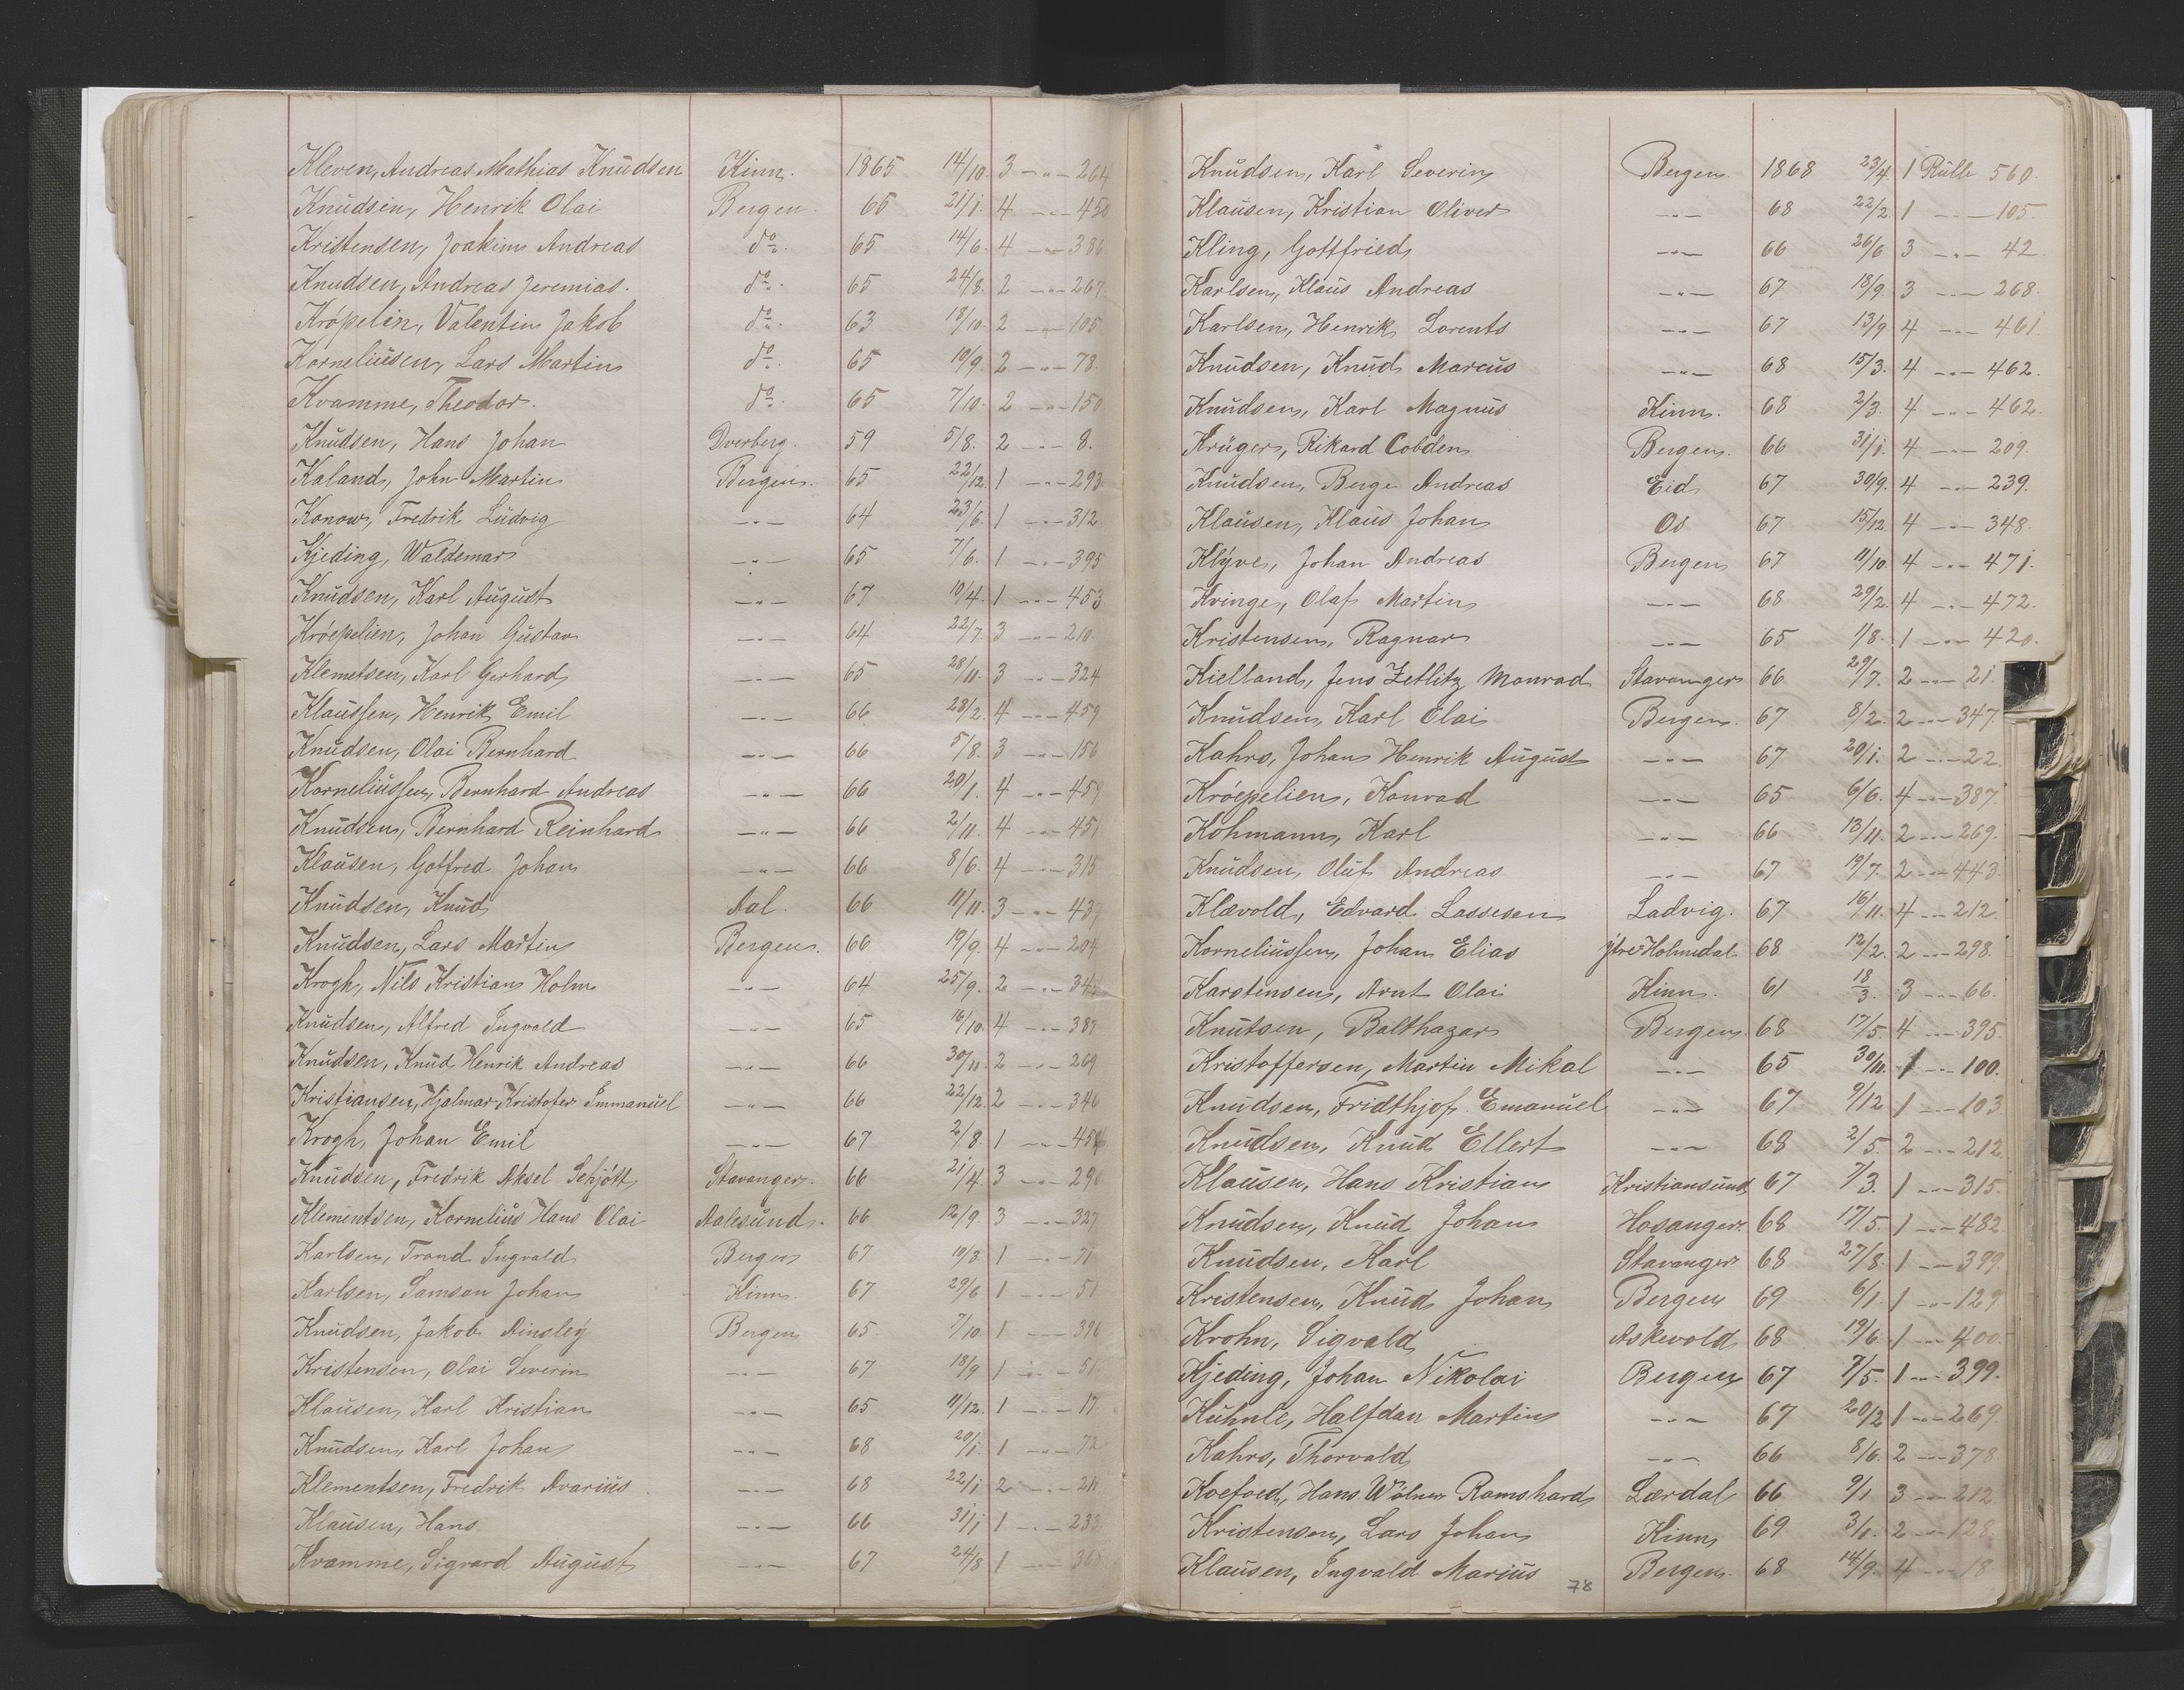 Kleven, Andreas Mathias Knudsen Kinn. 1865 14/10. 3 -"- 264
Knudsen, Henrik Olai Bergen. 65 21/1. 4 -"- 450
Kristensen, Joakim Andreas do. 65 14/6. 4 -"- 386
Knudsen, Andreas Jeremias. do. 65 24/8. 2 -"- 267
Kröpelin, Valentin Jakob do. 63 18/10. 2 -"- 105
Korneliusen, Lars Martin do. 65 10/9. 2 -"- 78.
Kvamme, Theodor. do. 65 7/10. 2 -"- 150
Knudsen, Hans Johan Dverberg. 59 5/8. 2 -"- 8.
Kaland, John Martin Bergen. 65 22/12 1 -"- 293
Konow, Fredrik Ludvig -"- 64 23/6. 1 -"- 312.
Kjeding, Waldemar -"- 65 7/6. 1 -"- 395
Knudsen, Karl August -"- 67 10/4. 1 -"- 453
Kröepelien, Johan Gustav -"- 64 22/7. 3 -"- 210.
Klemetsen, Karl Gerhard -"- 65 28/11. 3 -"- 324
Klaussen, Henrik Emil -"- 66 28/2. 4 -"- 459
Knudsen, Olai Bernhard -"- 66 5/8. 3 -"- 156
Korneliussen, Bernhard Andreas -"- 66 20/1. 4 -"- 459
Knudsen, Bernhard Reinhard -"- 66 2/11. 4 -"- 451
Klausen, Gotfred Johan -"- 66 8/6. 4 -"- 315
Knudsen, Knud Aal. 66 11/11. 3 -"- 437
Knudsen, Lars Martin Bergen. 66 19/9. 4 -"- 204
Krogh, Nils Kristian Holm -"- 64 25/9. 2 -"-
Knudsen, Alfred Ingvald -"- 65 16/10. 4 -"- 387
Knudsen, Knud Henrik Andreas -"- 66 30/11. 2 -"- 269
Kristiansen, Hjalmar Kristofer Immanuel -"- 66 22/12. 2 -"- 346
Krogh, Johan Emil -"- 67 2/8. 1 -"-
Knudsen, Fredrik Aksel Schjött Stavanger. 66 21/4. 3 -"- 290
Klementsen, Kornelius Hans Olai Aalesund. 66 12/9. 3 -"- 327
Karlsen, Trond Ingvald Bergen 67 10/3. 1 -"- 71
Karlsen, Samson Johan Kinn. 67 29/6 1 -"- 51
Knudsen, Jakob Ainsley Bergen 65 7/10. 1 -"- 396
Kristensen, Olai Severin -"- 67 18/9 1 -"- 51.
Klausen, Karl Kristian -"- 65 11/12. 1 -"- 17.
Knudsen, Karl Johan -"- 68 20/1. 1 -"- 72
Klementsen, Fredrik Avarius -"- 68 22/1 2 -"- 211
Klausen, Hans -"- 66 31/1 1 -"- 233
Kvamme, Sigvard August -"- 67 24/8 1 -"- 368
Knudsen, Karl Severin Bergen. 1868 23/4 1 Rulle 560.
Klausen, Kristian Oliver -"- 68 22/2. 1 -"- 105.
Kling, Gottfried -"- 66 26/6 3 -"- 42.
Karlsen, Klaus Andreas -"- 67 18/9. 3 -"- 268.
Karlsen, Henrik Lorents -"- 67 13/9 4 -"- 461.
Knudsen, Knud Marcus -"- 68 15/3. 4 -"- 462.
Knudsen, Karl Magnus Kinn. 68 2/3. 4 -"- 462.
Krüger, Rikard Cobden Bergen. 66 31/1. 4 -"- 209.
Knudsen, Berge Andreas Eid 67 30/9. 4 -"- 239.
Klausen, Klaus Johan Os 67 15/12. 4 -"- 348.
Klyve, Johan Andreas Bergen 67 11/10. 4 -"- 471.
Kvinge, Olaf Martin -"- 68 29/2. 4 -"- 472.
Kristensen, Ragnar -"- 65 1/8. 1 -"- 420.
Kielland, Jens Zetlitz Monrad Stavanger 66 29/7. 2 -"- 21.
Knudsen, Karl Elai Bergen. 67 8/2. 2 -"- 347.
Kahrs, Johan Henrik August -"- 67 20/1. 2 -"- 22.
Kröepelien, Konrad -"- 65 6/6. 4 -"- 387.
Kohmann, Karl -"- 66 13/11. 2 -"- 269.
Knudsen, Oluf Andreas -"- 67 19/7. 2 -"- 443.
Klævold, Edvard Lassesen Ladvig. 67 16/11. 4 -"- 212.
Korneliussen, Johan Elias Ytre Holmedal 68 12/2. 2 -"- 298.
Karstensen, Arnt Olai Kinn. 61 18/3. 3 -"- 66.
Knutsen, Balthazar Bergen. 68 17/5. 4 -"- 395.
Kristoffersen, Martin Mikal -"- 65 30/11. 1 -"- 100.
Knudsen, Fridthjof Emanuel -"- 67 9/12 1 -"- 103
Knudsen, Knud Ellert -"- 68 2/5. 2 -"- 212.
Klausen, Hans Kristian Kristiansund 67 7/3. 1 -"- 315.
Knudsen, Knud Johan Hosanger 68 17/5. 1 -"- 482.
Knudsen, Karl Stavanger 68 27/8. 1 -"- 399.
Kristensen, Knud Johan Bergen 69 6/1. 1 -"- 129
Krohn, Sigvald Askevold 68 19/6. 1 -"- 400.
Kjeding, Johan Nikolai Bergen 67 7/5. 1 -"- 399.
Kuhnle, Halfdan Martin -"- 67 20/2 1 -"- 269.
Kahrs, Thorvald -"- 66 8/6. 2 -"- 378
Koefoed, Hans Wölner Ramshard Lærdal 66 9/1 3 -"- 212
Kristensen, Lars Johan Kinn 69 3/1. 2 -"- 128.
Klausen, Ingvald Marius Bergen. 68 14/9. 4 -"- 18
78